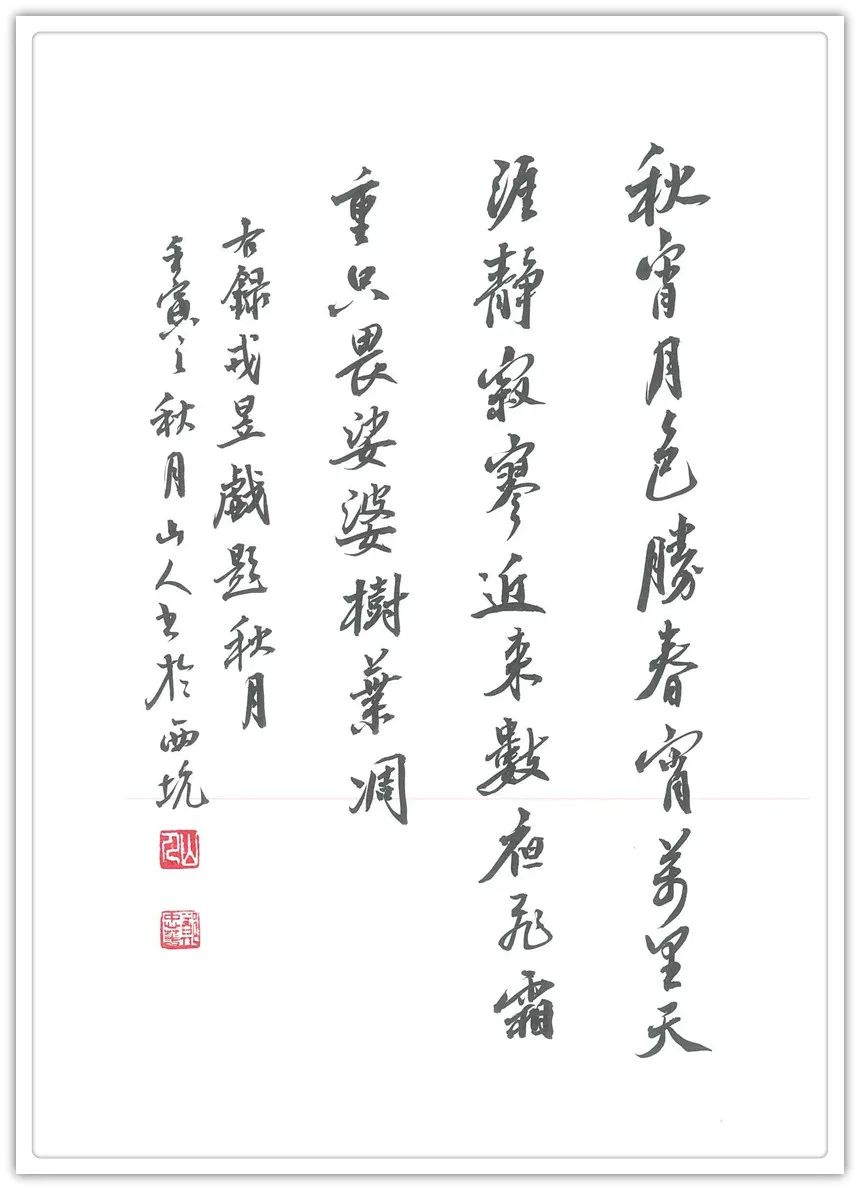 秋宵月色勝春宵萬里天
涯靜寂寥近来數夜飛霜
重只畏娑婆樹葉凋
右錄戎昱戲題秋月
壬寅之秋月山人書於西坑
山人